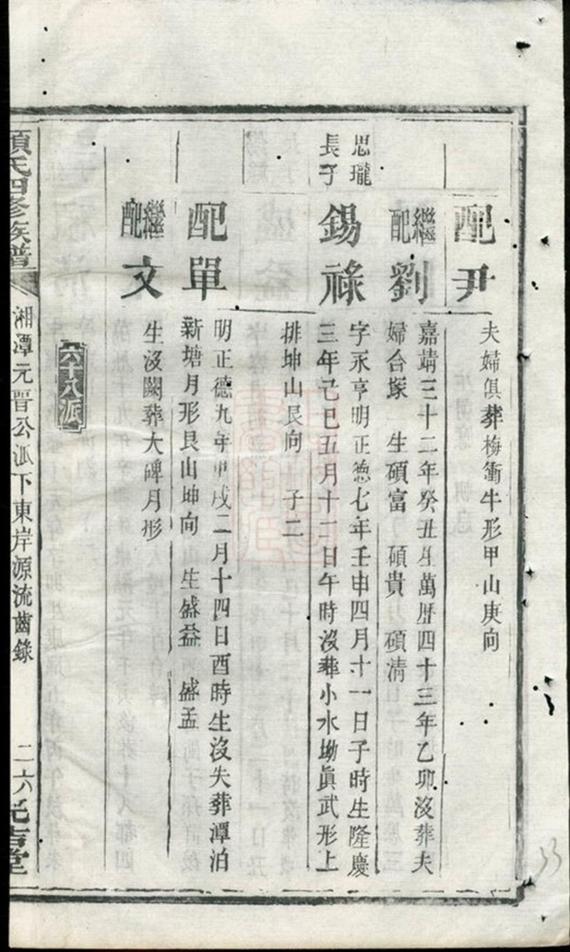 配尹
夫婦俱葬梅衝牛形甲山庚向
繼配劉
嘉靖三十二年癸丑生萬曆四十三年乙卯沒葬夫
婦合塚 生碩富 碩貴 碩清
思瓏長子
錫祿
字永亨明正德七年壬申四月十一日子時生隆慶
三年己巳五月十一日午時沒葬小水坳眞武形上
排坤山艮向 子二
配單
明正德九年甲戌二月十四日酉時生沒失葬潭泊
新塘月形艮山坤向 生盛益 盛孟
繼配文
生沒闕葬大碑月形
六十八派
項氏四修族譜
湘潭元晉公派下東岸源流齒錄
二六
33